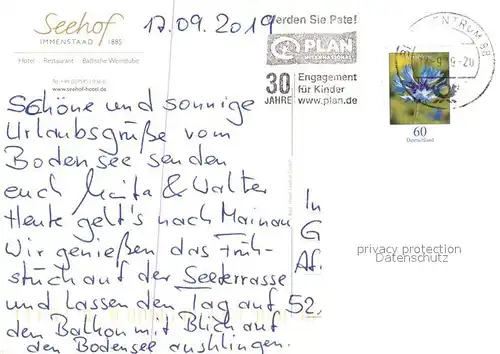 Seehof
IMMENSTAAD 1885
Hotel · Restaurant · Badische Weinstube
www.seehof-hotel.de
17.09.2019
Werden Sie Pate!
PLAN
INTERNATIONAL
30
JAHRE
Engagement
für Kinder
www.plan.de
ENTRUM 88
60
Deutschland
Schöne und sonnige
Urlaubsgrüße vom
Bodensee senden
euch & Walter
Heute geht's nach Mainau
Wir genießen das Früh-
stück auf der Seeterrasse
und lassen den Tag auf
den Balkon mit Blich auf
den Bodensee ausklingen.
In
G
Af.
52.
privacy protection
Datenschutz